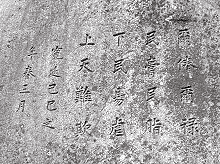 爾俸爾祿
民膏民脂
下民易虐
上天難欺
寛延己巳之
年春三月